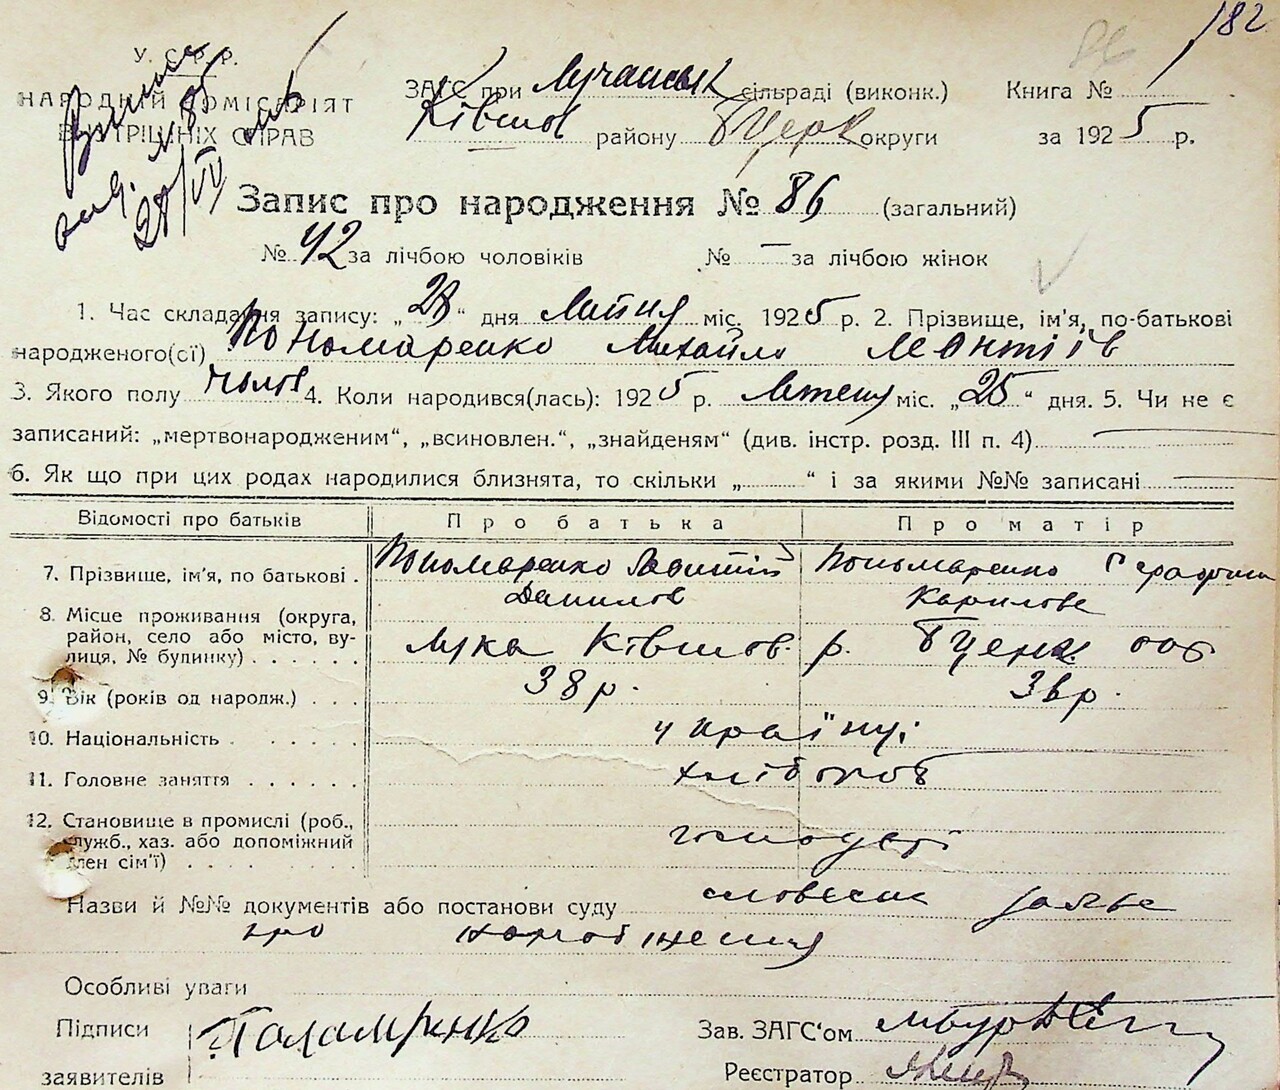 182
86
У. С. Р. Р.
НАРОДНІЙ КОМІСАРІЯТ
ВНУТРІШНІХ СПРАВ
ЗАГС при Лучанськ сільраді (виконк.) Книга №
Ківшов району БЦерк округи за 1925 р.
Запис про народження № 86 (загальний)
№ 42 за лічбою чоловіків № — за лічбою жінок
1. Час складання запису: „28“ дня липня міс. 1925 р. 2. Прізвище, ім'я, по-батькові
народженого(сі) Пономаренко Михайло Леонтіїв
3. Якого полу чолов 4. Коли народився(лась): 1925 р. міс. „25“ дня. 5. Чи не є
записаний: „мертвонародженим“, „всиновлен.“, „знайденям“ (див. інстр. розд. III п. 4)
6. Як що при цих родах народилися близнята, то скільки „ “ і за якими №№ записані
Відомості про батьків Про батька Про матір
7. Прізвище, ім'я, по батькові . Пономаренко Леонтій Пономаренко
Данилов Кирилова
8. Місце проживання (округа,
район, село або місто, ву-
лиця, № будинку) . . . . . . Лука Ківшов. р. БЦерк.
9. Вік (років од народж.) . . . 38 р. 36 р.
10. Національність . . . . . . українці
11. Головне заняття . . . . . . хлібороб
12. Становище в промислі (роб.,
служб., хаз. або допоміжний
член сім'ї) . . . . господарі
Назви й №№ документів або постанови суду словесна заява
про народження
Особливі уваги
Підписи Паламаренко Зав. ЗАГС'ом
заявителів Реєстратор